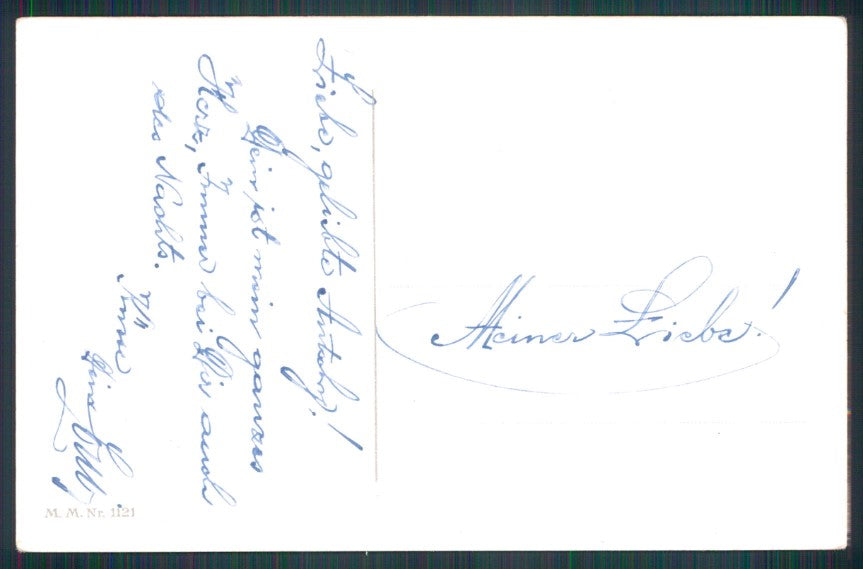 Liebe, geliebte Antschy!
Dein ist mein ganzes
Herz, Immer bei Dir auch
des Nachts.
Immer
Dein
Meiner Liebe!
M. M. Nr. 1121